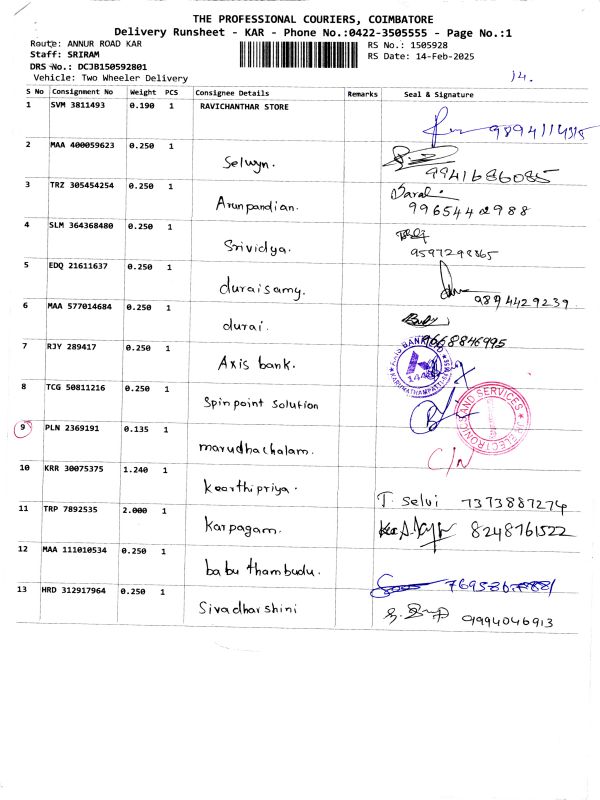 THE PROFESSIONAL COURIERS, COIMBATORE
Delivery Runsheet - KAR - Phone No.:0422-3505555 - Page No.:1
Route: ANNUR ROAD KAR RS No.: 1505928
Staff: SRIRAM RS Date: 14-Feb-2025
DRS No.: DCJB150592801
Vehicle: Two Wheeler Delivery 14.
S No Consignment No Weight PCS Consignee Details Remarks Seal & Signature
1 SVM 3811493 0.190 1 RAVICHANTHAR STORE
2 MAA 400059623 0.250 1 Selwyn. 9941686085
3 TRZ 305454254 0.250 1 Arunpandian. 9965442988
4 SLM 364368480 0.250 1 Srividya. 9597298865
5 EDQ 21611637 0.250 1 duraisamy. 9894429239
6 MAA 577014684 0.250 1 durai. 9668846995
7 RJY 289417 0.250 1 Axis bank.
8 TCG 50811216 0.250 1 Spinpoint Solution
9 PLN 2369191 0.135 1 marudhachalam. C/N
10 KRR 30075375 1.240 1 Keerthipriya. T. Selvi 7373887274
11 TRP 7892535 2.000 1 Karpagam. 8248761522
12 MAA 111010534 0.250 1 babu thambudu.
13 HRD 312917964 0.250 1 Sivadharshini 9994046913